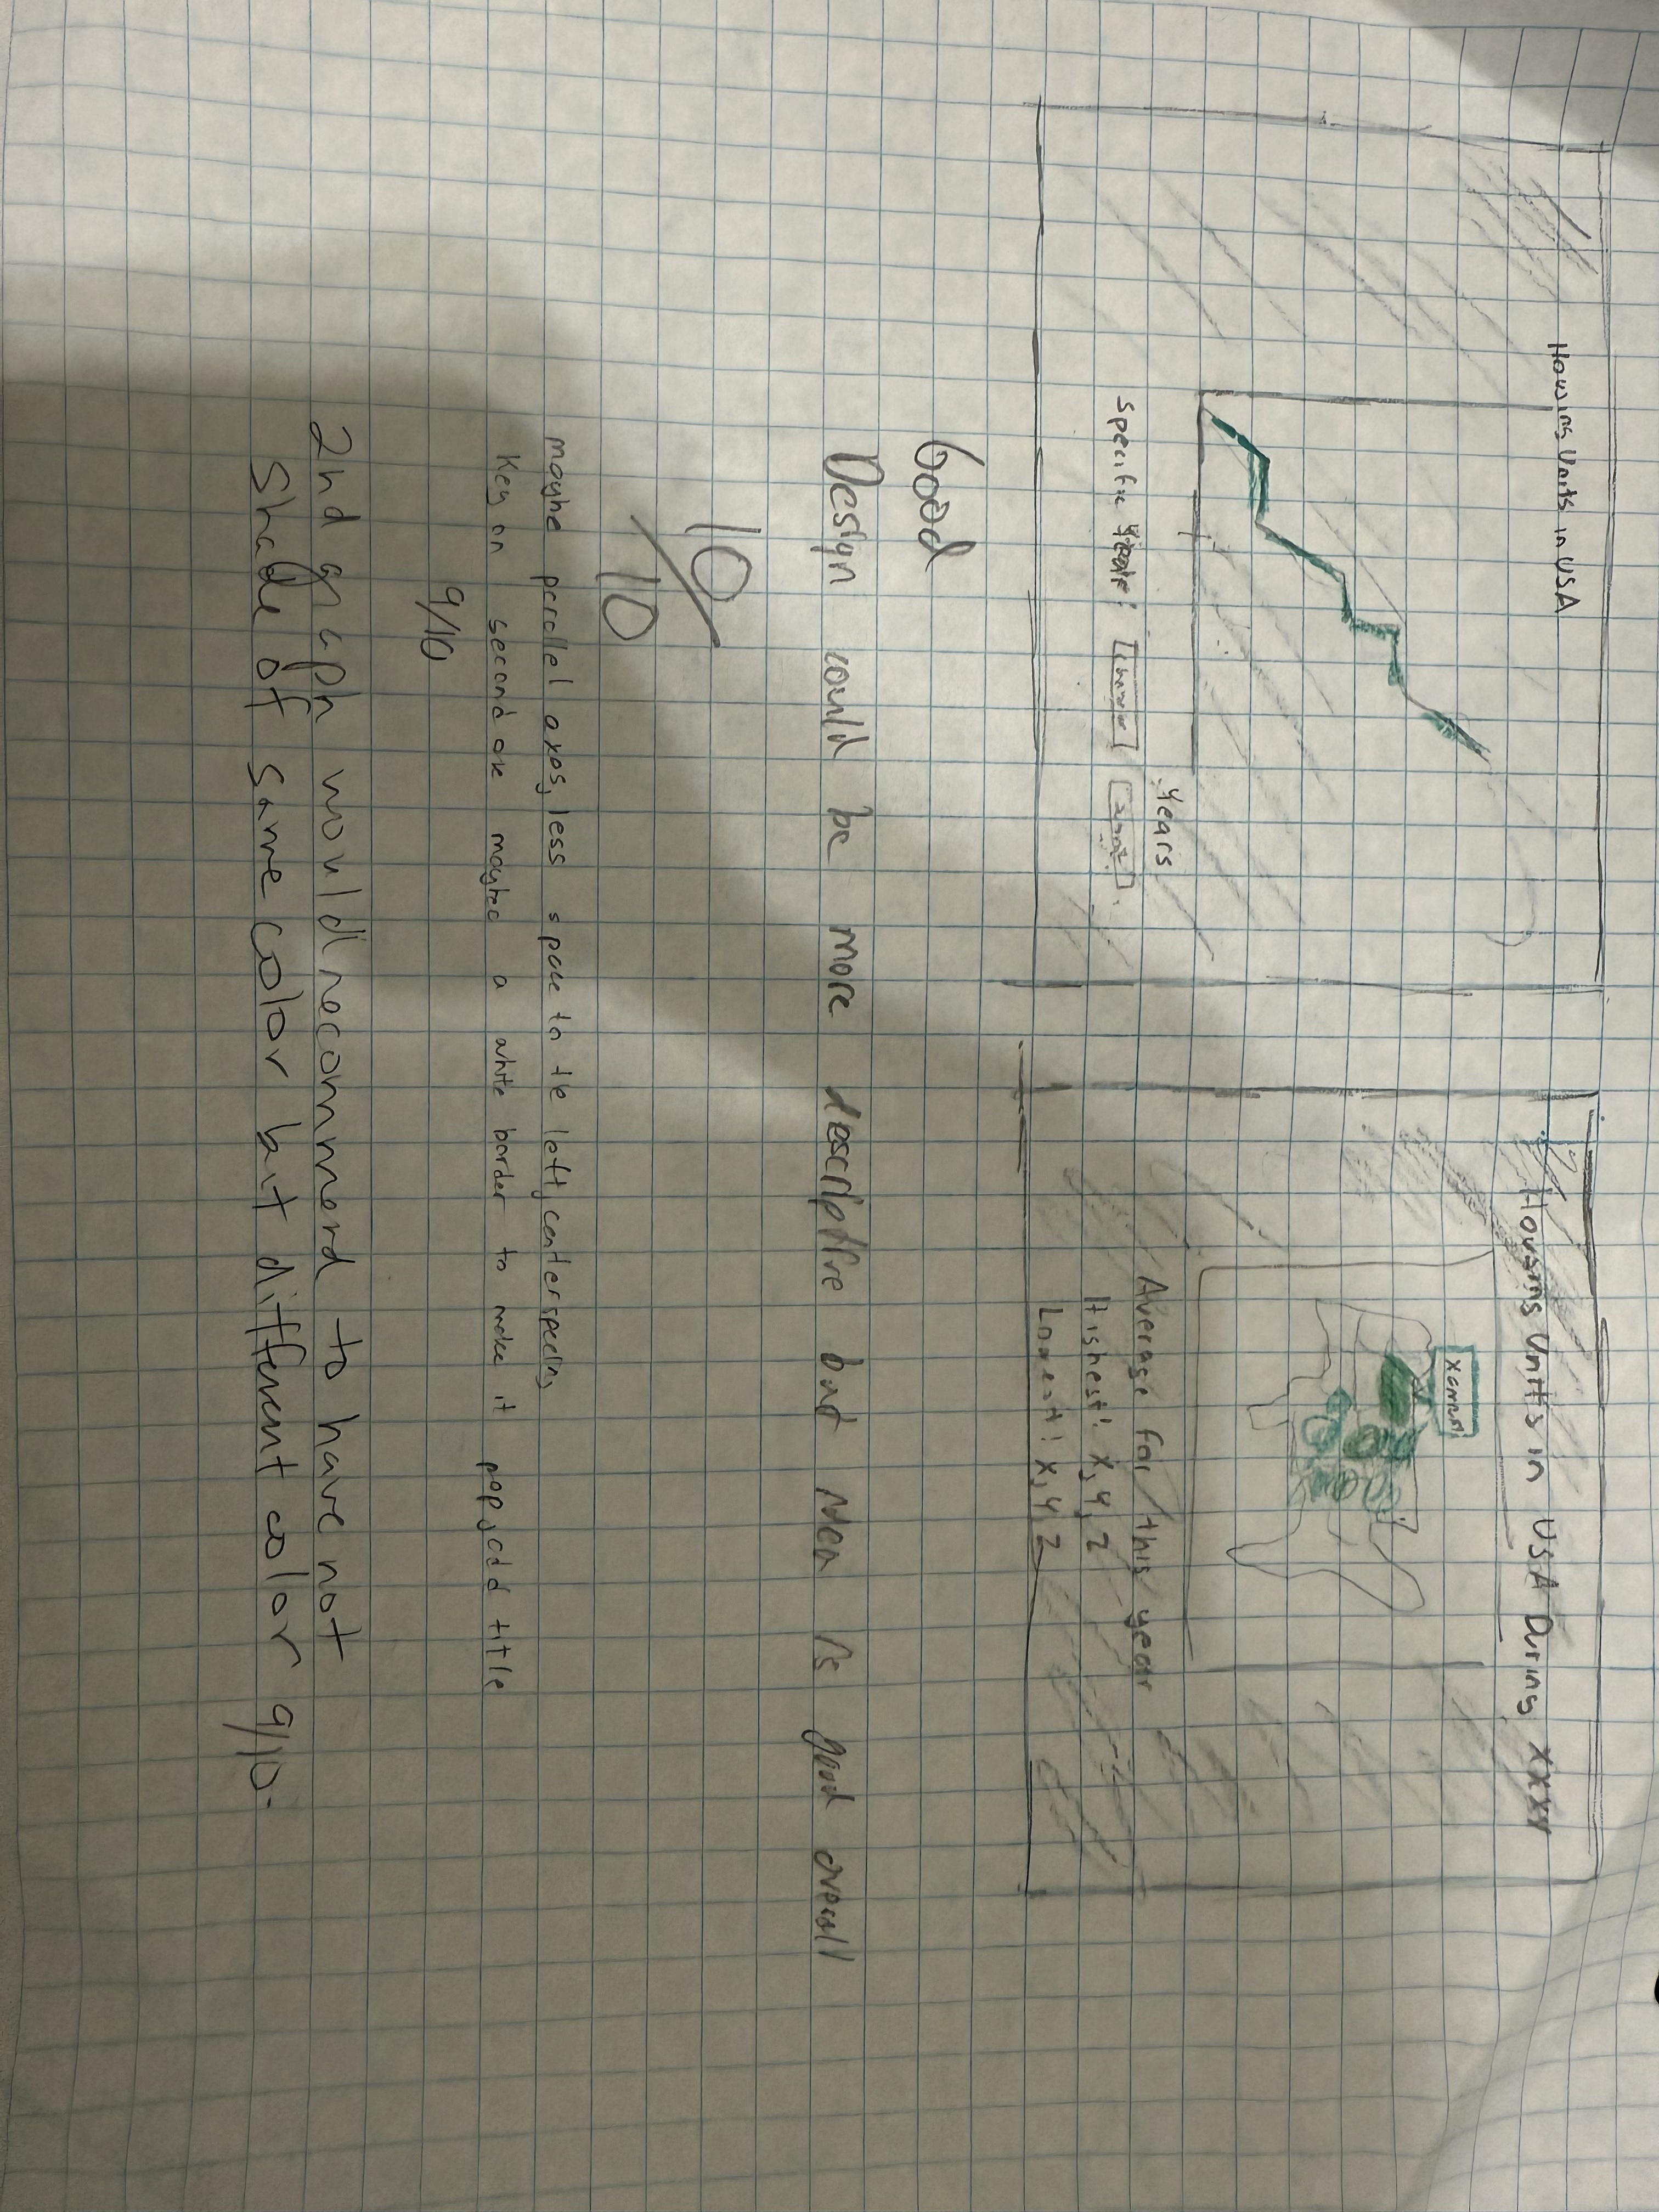 Housing Units in USA
Years
Specific
Housing Units in USA During XXXX
Average for this year
Highest: X, Y, Z
Lowest: X, Y, Z
Good
Design could be more descriptive but idea is good overall
10/10
maybe parallel axes, less space to the left, center
Key on second one a white border to make it pop, add title
9/10
2nd graph would recommend to have not
Shade of same color but different color 9/10.